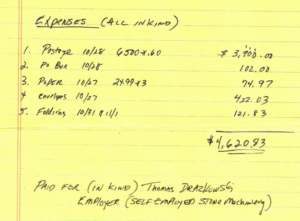 EXPENSES (ALL IN KIND)
1. Postage 10/28 6500 x .60 $ 3,900.00
2. Po Box 10/28 102.00
3. Paper 10/27 24.99 x 3 74.97
4 Envelopes 10/27 422.03
5. Folding 10/31 & 11/1 121.83
$4,620.83
PAID FOR (IN KIND) Thomas DRAZKOWSKI
EMPLOYER (SELF EMPLOYED STONE Machinery)